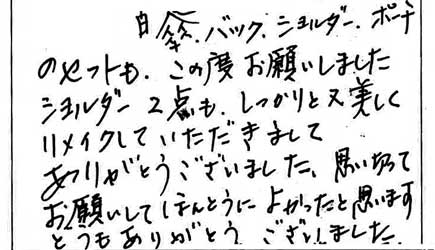 日傘.バック.ショルダー.ポーチ
のセットも.この度お願いしました
ショルダー2点も.しっかりと又美しく
リメイクしていただきまして
ありがとうございました、思い切って
お願いしてほんとうによかったと思います
とうもありがとうございました